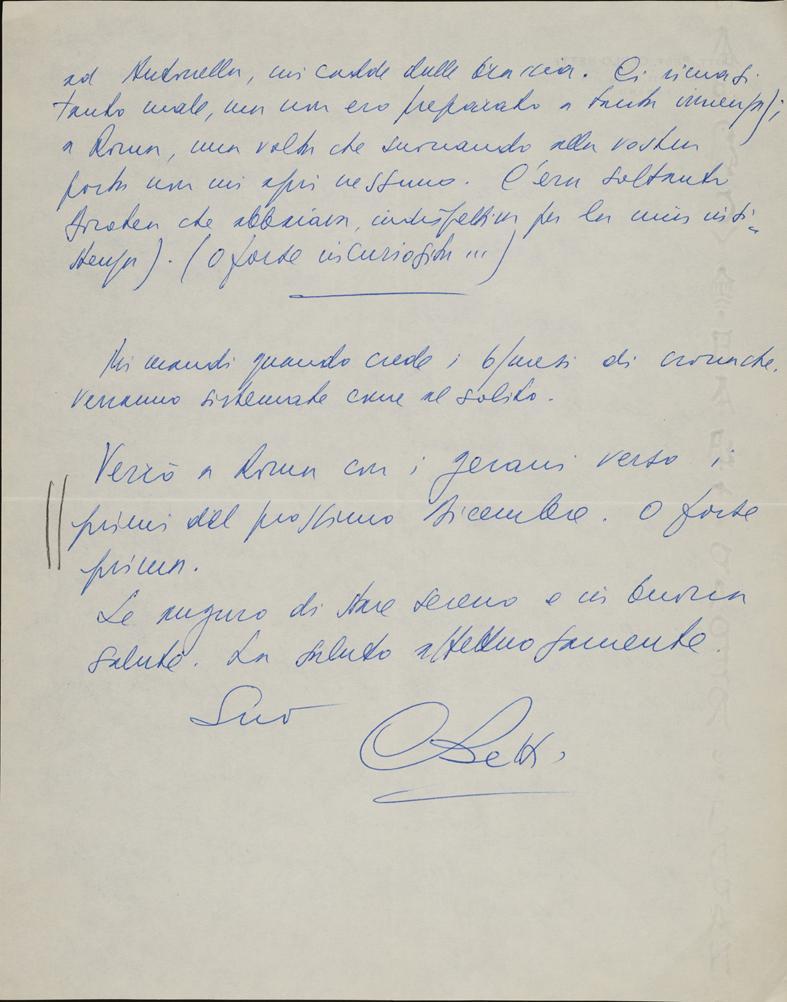 ad Antonella, mi cadde dalle braccia. Ci rimasi
tanto male, ma non ero preparato a tanta
a Roma, una volta che suonando alla vostra
porta non mi aprì nessuno. C'era soltanto
che abbaiava, indispettita per la mia insi=
stenza). (O forse incuriosita ...)
Mi mandi quando crede i 6/mesi di cronache.
Verranno sistemate come al solito.
Verrò a Roma con i gerani verso i
primi del prossimo Dicembre. O forse
prima.
Le auguro di stare sereno e in buona
salute. La saluto affettuosamente.
Suo